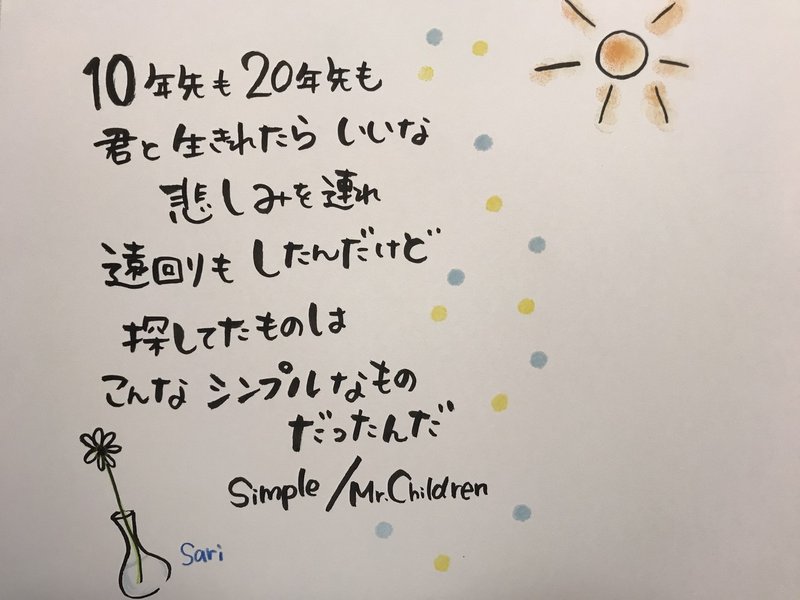 10年先も20年先も
君と生きれたらいいな
悲しみを連れ
遠回りもしたんだけど
探してたものは
こんなシンプルなもの
だったんだ
Simple/Mr.Children
Sari